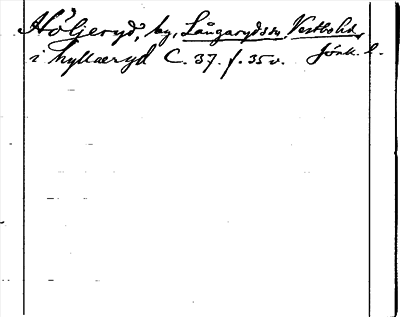 Höljeryd, by, Långarydssn, Vestbohd,
i hyllæryd C. 37. f. 35 v. Jönk. l.